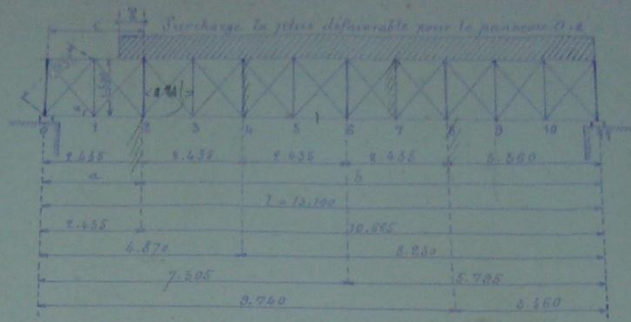 Surcharge la plus défavorable pour le panneau 0-2
c
1 2 3 4 5 6 7 8 9 10
2.435 2.435 2.435 2.435 3.360
a b
l = 13.100
2.435 10.665
4.870 8.230
7.305 5.795
9.740 3.360